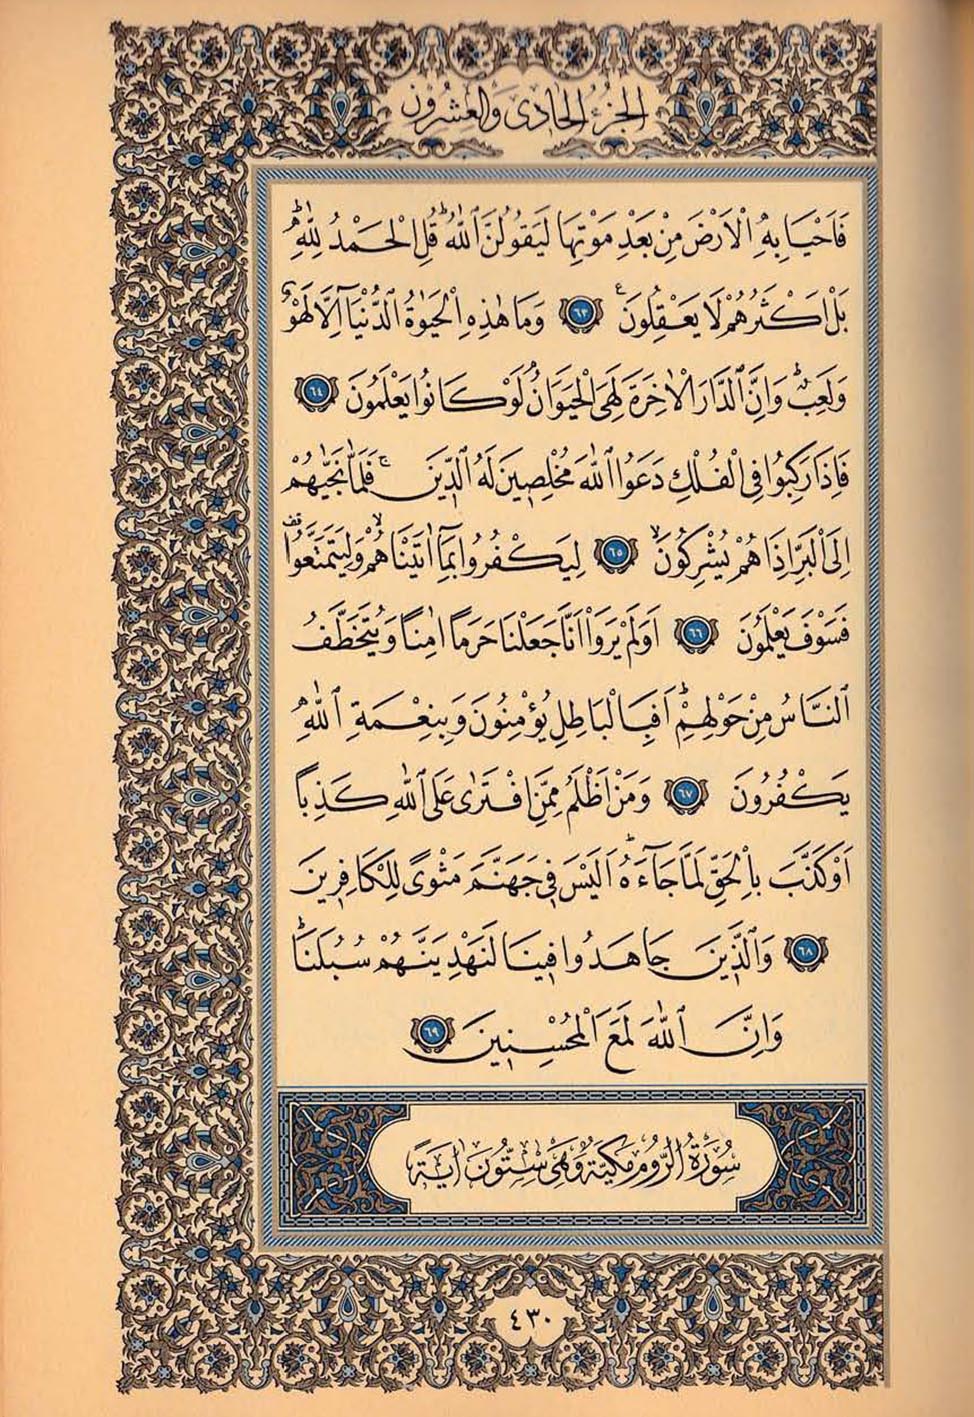 الجزء الحادى والعشرون
فَاَحْيَا بِهِ الْاَرْضَ مِنْ بَعْدِ مَوْتِهَا لَيَقُولُنَّ اللّٰهُۜ قُلِ الْحَمْدُ لِلّٰهِۜ
بَلْ اَكْثَرُهُمْ لَا يَعْقِلُونَ ﴿٦٣﴾ وَمَا هٰذِهِ الْحَيٰوةُ الدُّنْيَٓا اِلَّا لَهْوٌ
وَلَعِبٌۜ وَاِنَّ الدَّارَ الْاٰخِرَةَ لَهِيَ الْحَيَوَانُۢ لَوْ كَانُوا يَعْلَمُونَ ﴿٦٤﴾
فَاِذَا رَكِبُوا فِي الْفُلْكِ دَعَوُا اللّٰهَ مُخْلِصِينَ لَهُ الدِّينَۚ فَلَمَّا نَجّٰيهُمْ
اِلَى الْبَرِّ اِذَا هُمْ يُشْرِكُونَۙ ﴿٦٥﴾ لِيَكْفُرُوا بِمَٓا اٰتَيْنَاهُمْۙ وَلِيَتَمَتَّعُوا۠
فَسَوْفَ يَعْلَمُونَ ﴿٦٦﴾ اَوَلَمْ يَرَوْا اَنَّا جَعَلْنَا حَرَماً اٰمِناً وَيُتَخَطَّفُ
النَّاسُ مِنْ حَوْلِهِمْۜ اَفَبِالْبَاطِلِ يُؤْمِنُونَ وَبِنِعْمَةِ اللّٰهِ
يَكْفُرُونَ ﴿٦٧﴾ وَمَنْ اَظْلَمُ مِمَّنِ افْتَرٰى عَلَى اللّٰهِ كَذِباً
اَوْ كَذَّبَ بِالْحَقِّ لَمَّا جَٓاءَهُۜ اَلَيْسَ فِي جَهَنَّمَ مَثْوًى لِلْكَافِرِينَ
﴿٦٨﴾ وَالَّذِينَ جَاهَدُوا فِينَا لَنَهْدِيَنَّهُمْ سُبُلَنَاۜ
وَاِنَّ اللّٰهَ لَمَعَ الْمُحْسِنِينَ ﴿٦٩﴾
سُورَةُ الرُّومِ مَكِّيَّةٌ وَهِيَ سِتُّونَ اٰيَةً
٤٣٠